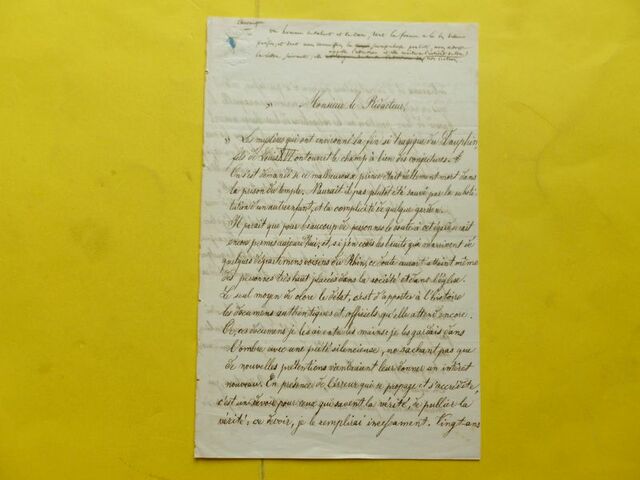 un homme
la lettre suivante,
" Monsieur le Rédacteur,
" Les mystères qui ont environné la fin si tragique du Dauphin,
fils de Louis XVI, ont ouvert le champ à bien des conjectures.
On s'est demandé si ce malheureux prince était réellement mort dans
la prison du temple. N'aurait il pas plutôt été sauvé par la substi-
tution d'un autre enfant, et la complicité de quelque gardien.
Il parait que pour beaucoup de personnes le doute à cet égard serait
encore permis aujourd'hui, et, si j'en crois les bruits qui m'arrivent de
quelques départemens voisins du Rhin, ce doute aurait atteint même
des personnes très haut placées dans la société et dans l'église.
Le seul moyen de clore le débat, c'est d'apporter à l'histoire
les documens authentiques et officiels qu'elle attend encore.
Or, ces documens je les ai entre les mains: je les gardais dans
l'ombre avec une piété silencieuse, ne sachant pas que
de nouvelles prétentions viendraient leur donner un intérêt
nouveau. En présence de l'erreur qui se propage et s'accrédite,
c'est un devoir pour ceux qui savent la vérité, de publier la
vérité: ce devoir, je le remplirai incessament. Vingt-ans